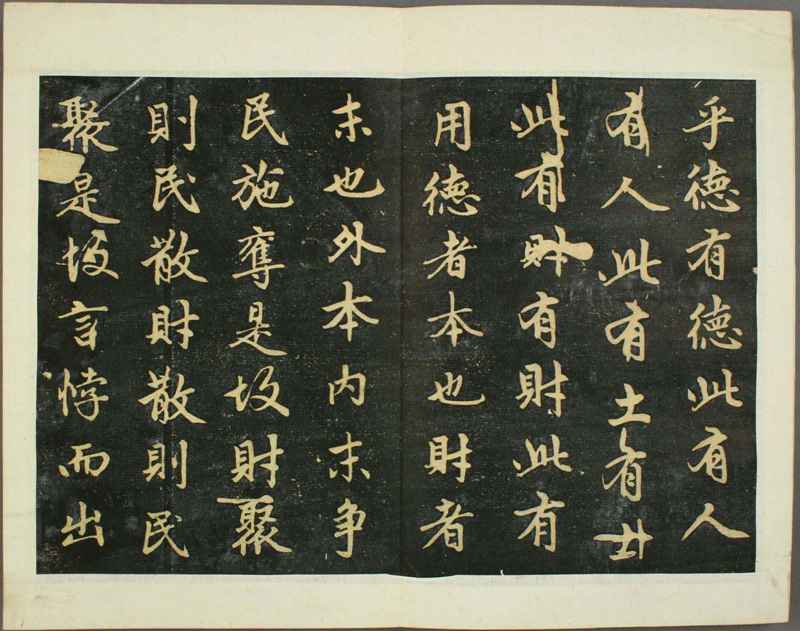 乎德有德此有人
有人此有土有土
此有財有財此有
用德者本也財者
末也外本内末争
民施奪是故財聚
則民散財散則民
聚是故言悖而出